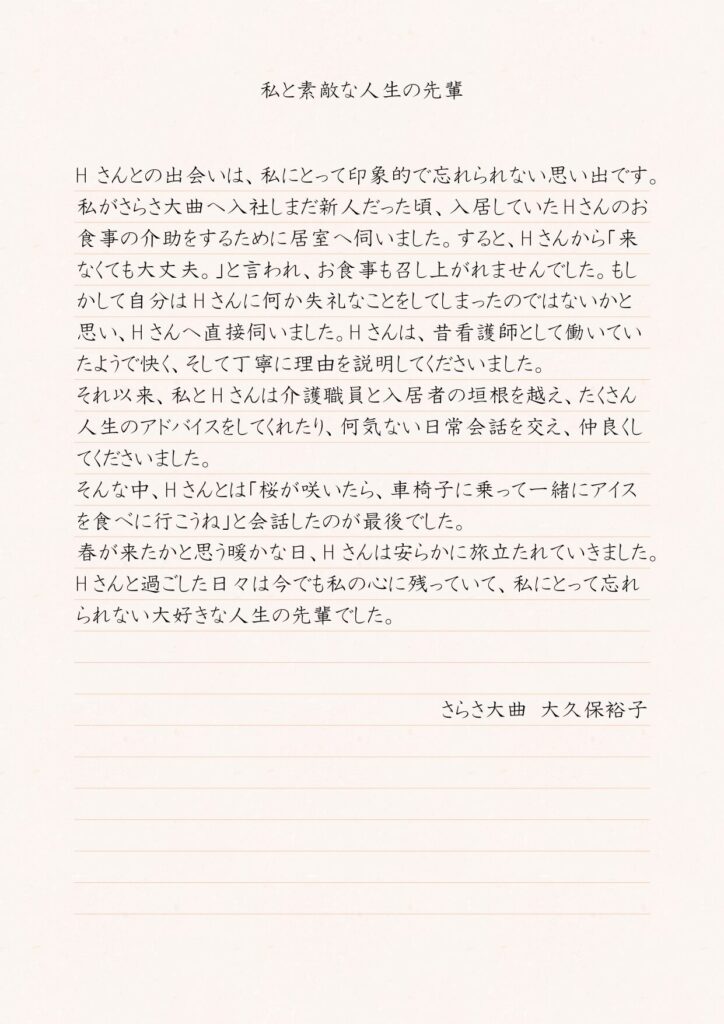 私と素敵な人生の先輩
Hさんとの出会いは、私にとって印象的で忘れられない思い出です。
私がさらさ大曲へ入社しまだ新人だった頃、入居していたHさんのお
食事の介助をするために居室へ伺いました。すると、Hさんから「来
なくても大丈夫。」と言われ、お食事も召し上がれませんでした。もし
かして自分はHさんに何か失礼なことをしてしまったのではないかと
思い、Hさんへ直接伺いました。Hさんは、昔看護師として働いてい
たようで快く、そして丁寧に理由を説明してくださいました。
それ以来、私とHさんは介護職員と入居者の垣根を越え、たくさん
人生のアドバイスをしてくれたり、何気ない日常会話を交え、仲良くし
てくださいました。
そんな中、Hさんとは「桜が咲いたら、車椅子に乗って一緒にアイス
を食べに行こうね」と会話したのが最後でした。
春が来たかと思う暖かな日、Hさんは安らかに旅立たれていきました。
Hさんと過ごした日々は今でも私の心に残っていて、私にとって忘れ
られない大好きな人生の先輩でした。
さらさ大曲 大久保裕子